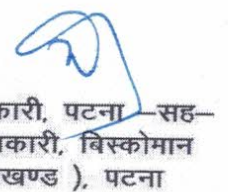 कारी, पटना –सह–
कारी, बिस्कोमान
खण्ड ), पटना